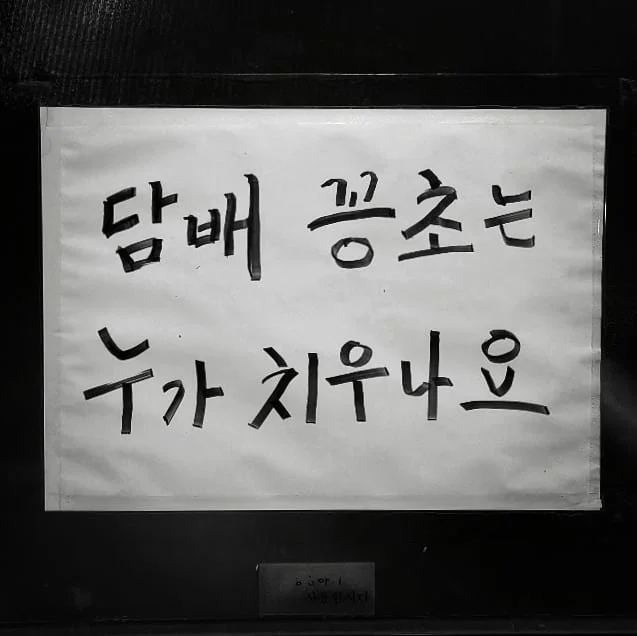 담배 꽁초는
누가 치우나요